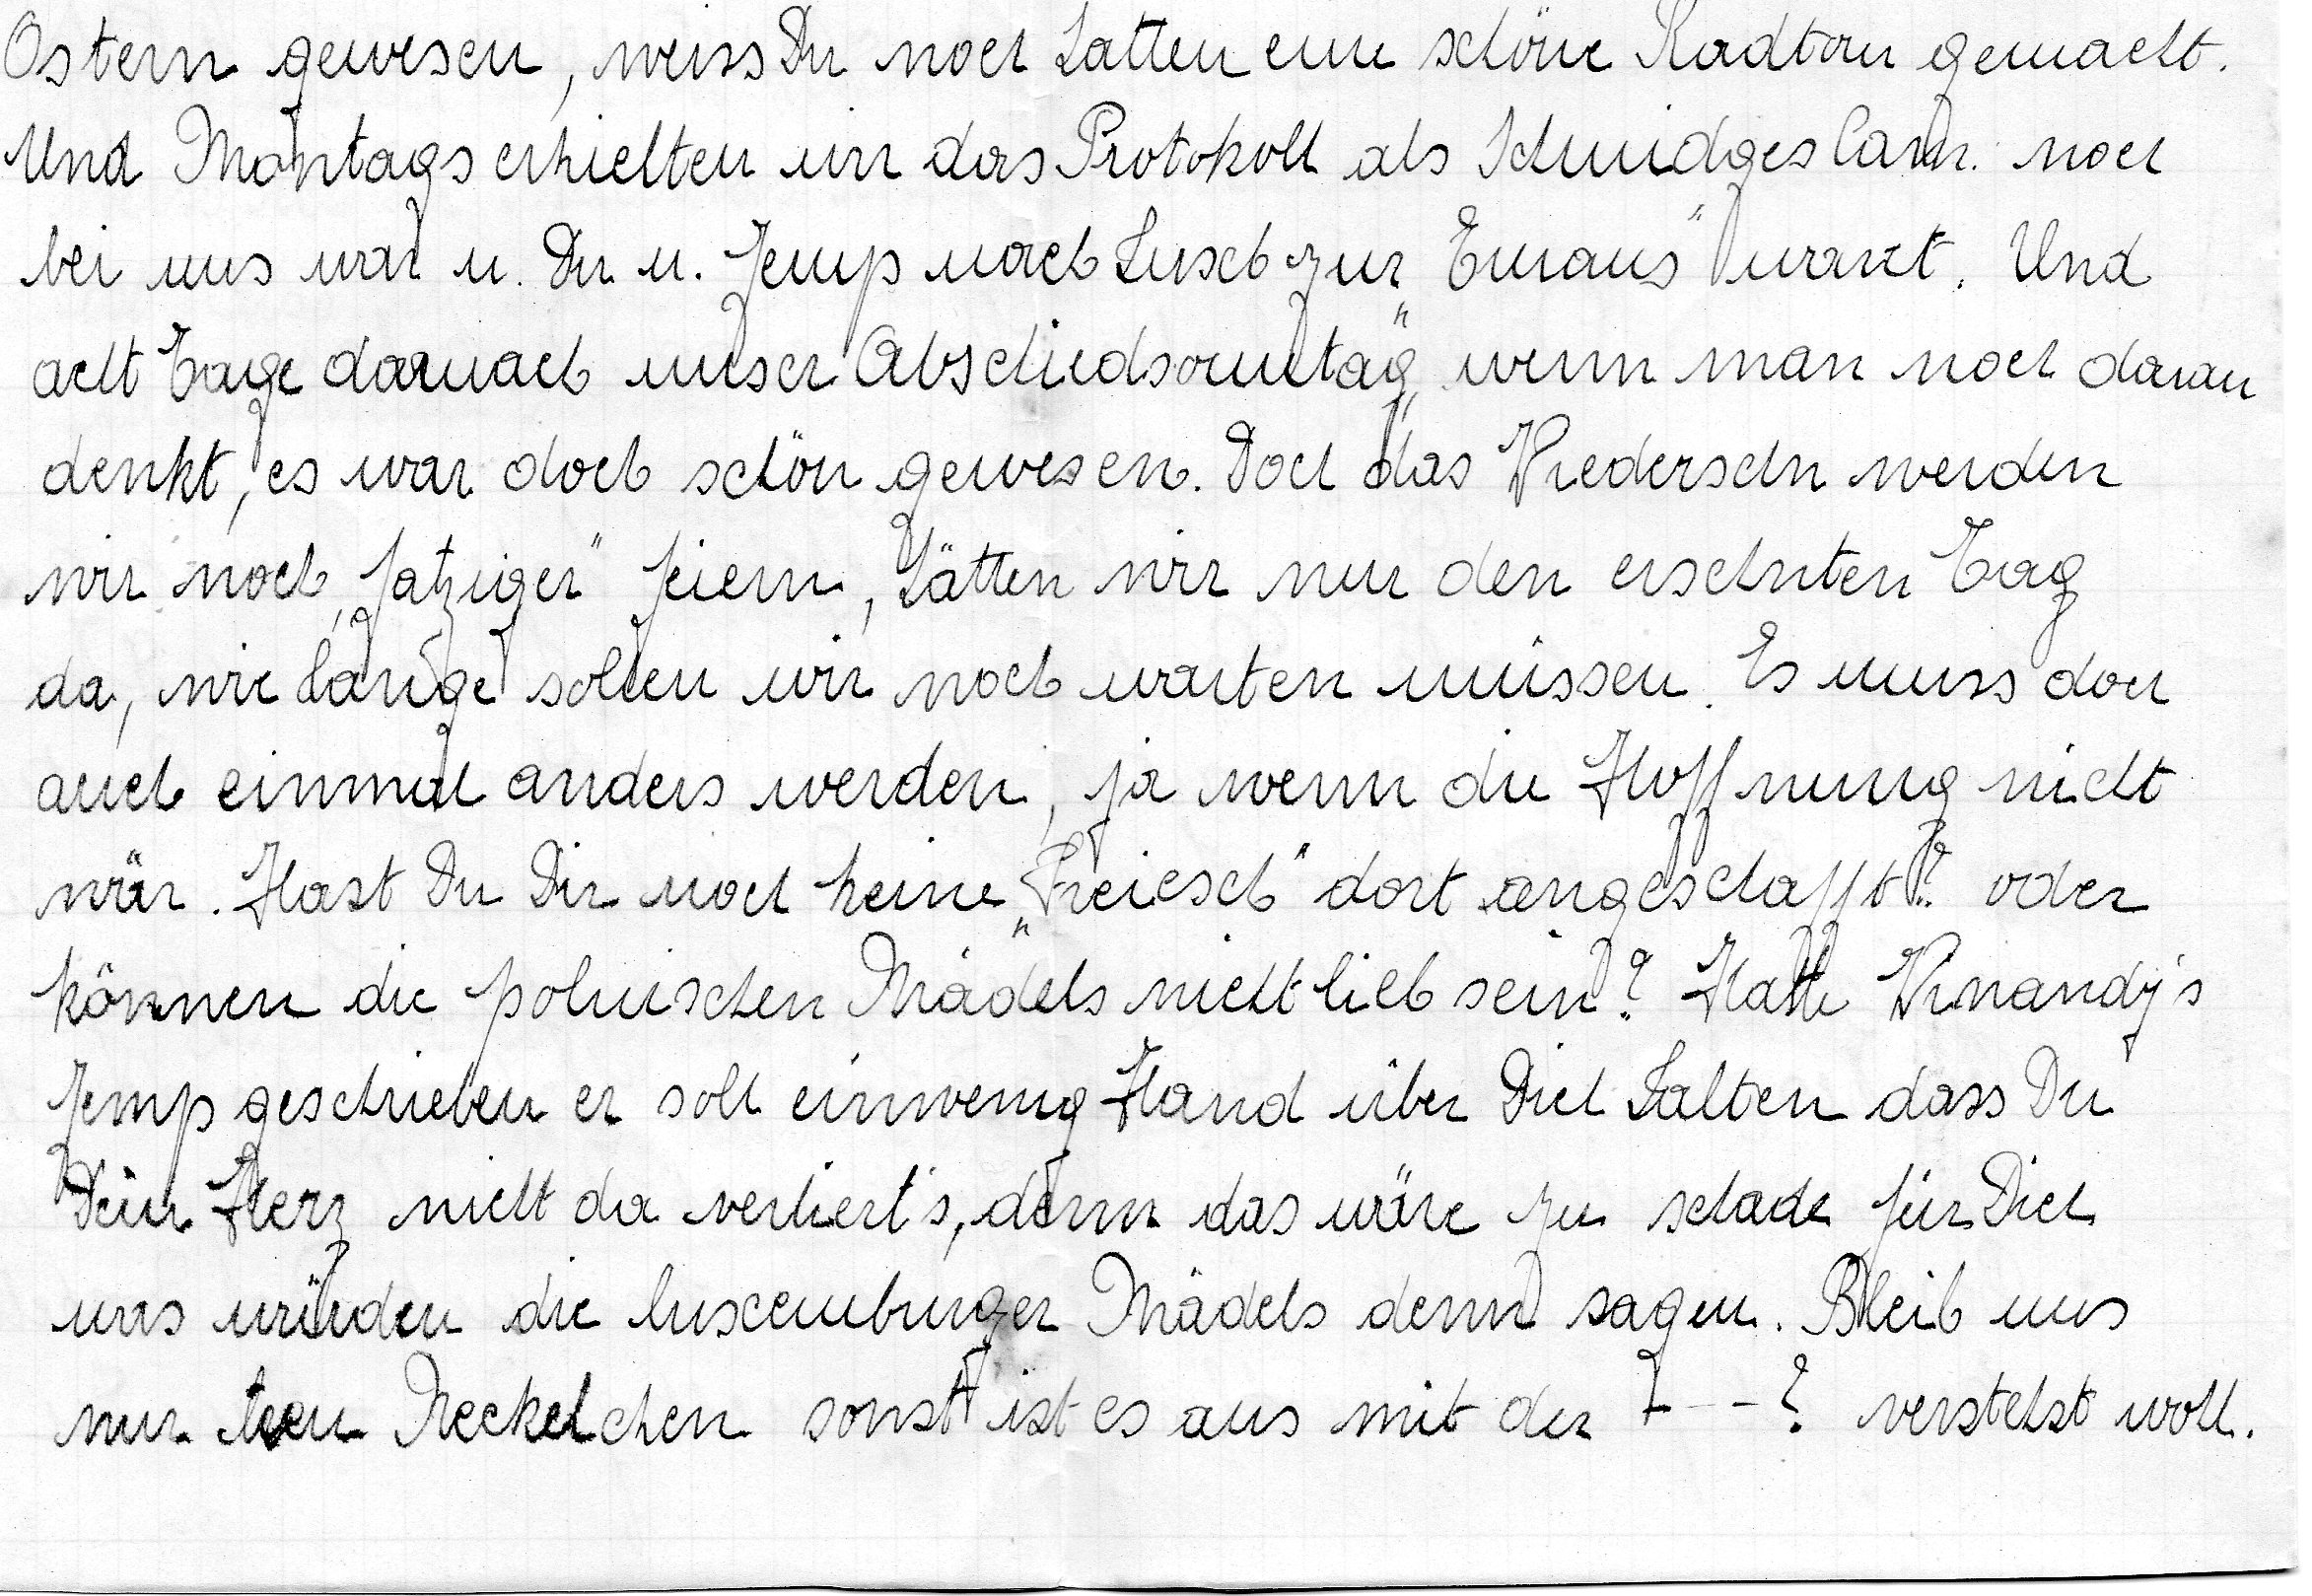 Ostern gewesen, weiss Du noch hatten eine schöne Radtour gemacht.
Und Montags erhielten wir das Protokoll als Schmidges Cath. noch
bei uns war u. Du u. Jemp nach Lusch zur "Emaus" warst. Und
acht Tage darnach unser "Abschiedsonntag" wenn man noch daran
denkt, es war doch schön gewesen. Doch das Wiedersehn werden
wir noch "fatziger" feiern, hätten wir nur den ersehnten Tag
da, wie lange sollen wir noch warten müssen. Es muss doch
auch einmal anders werden, ja wenn die Hoffnung nicht
wär. Hast Du Dir noch keine "Freiesch" dort angeschafft? oder
können die polnischen Mädels nicht lieb sein? Hatte Winandy's
Jemp geschrieben er soll einwenig Hand über Dich halten dass Du
Dein Herz nicht da verliert's, denn das wäre zu schade für Dich
was würden die luxemburger Mädels denn sagen. Bleib uns
nur treu Reckelchen sonst ist es aus mit der F - - ? verstehst wohl.